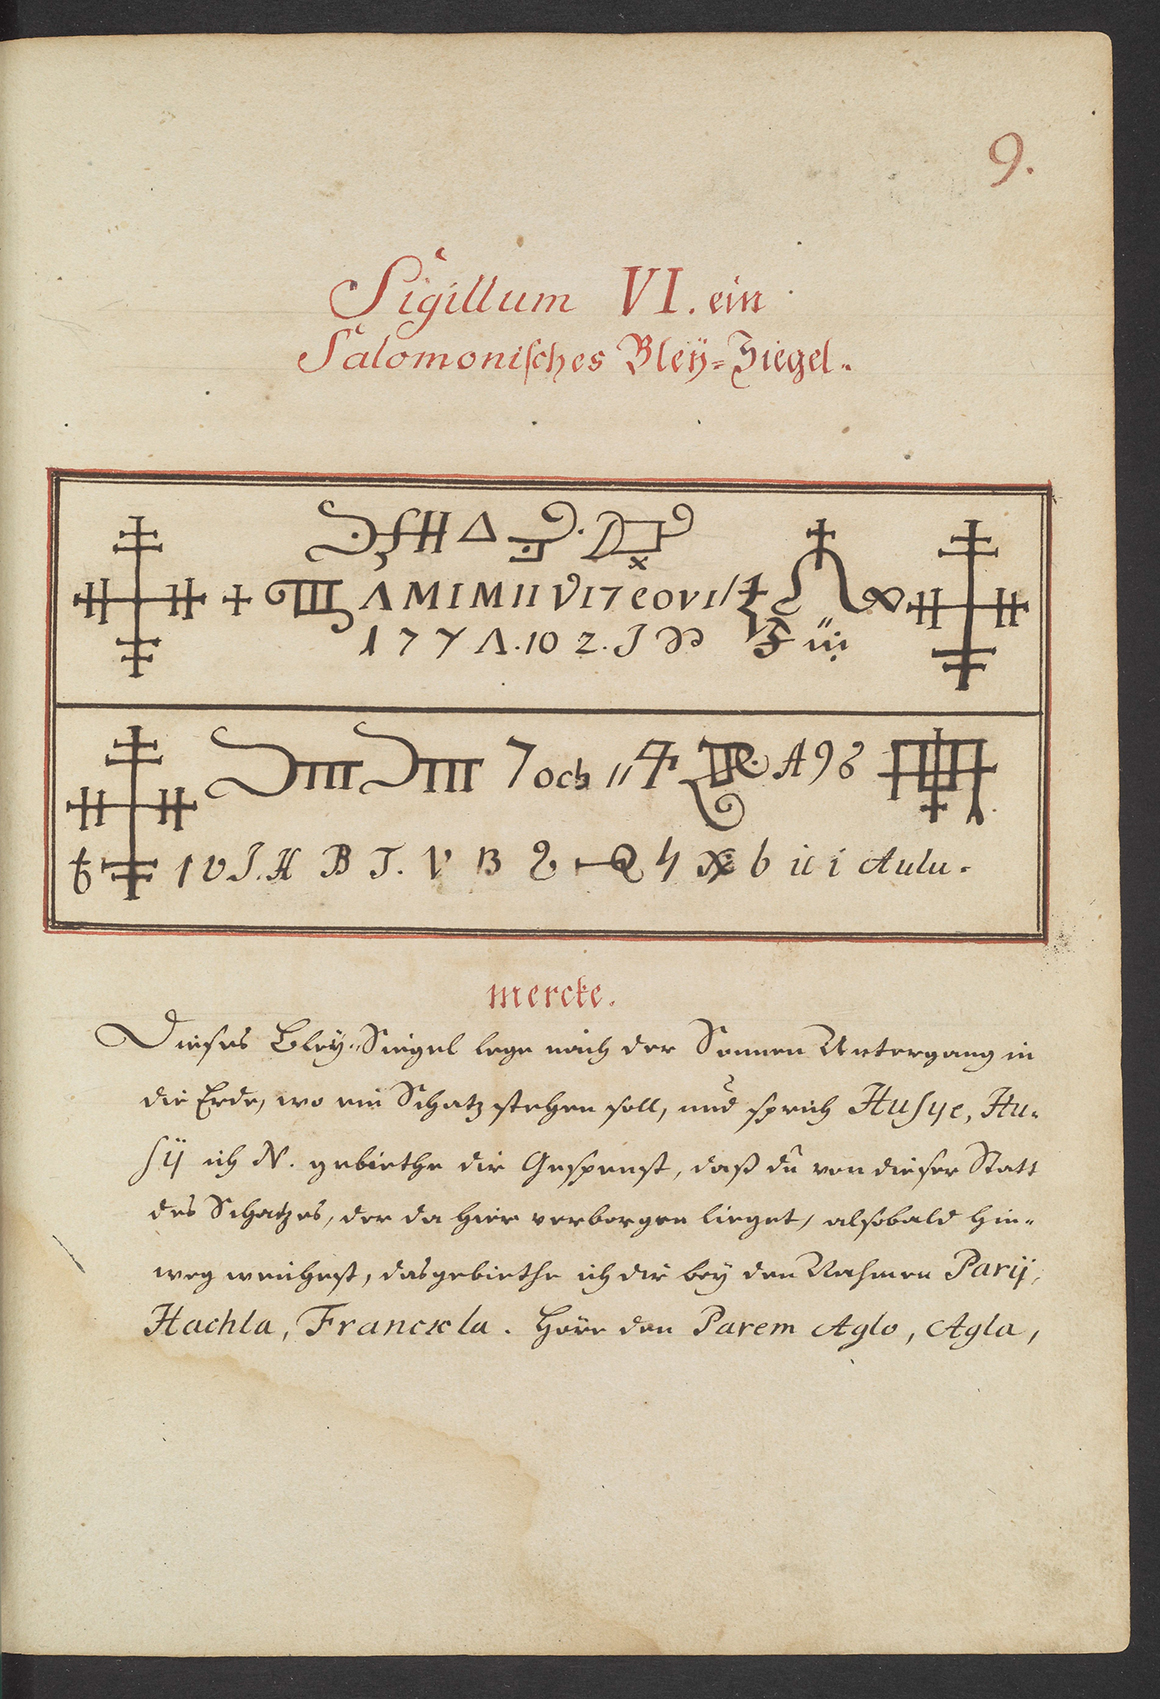 9.
Sigillum VI. ein
Salomonisches Bleÿ-Siegel.
A M I M II V I 7 e o v i
1 7 7 Λ. 10 2. J
7 och 11 A 9 8
6 1 v J. H B T. V B 4 6 ii i Aulu.
mercke.
Dieses Bleÿ-Siegel lege nach der Sonnen Untergang in
die Erde, wo ein Schatz stehen soll, und sprich Husye, Hu-
sÿ ich N. gebiethe dir Gespenst, daß du von dieser Statt
des Schatzes, der da hier verborgen lieget, alsobald hin-
weg weichest, das gebiethe ich dir beÿ den Nahmen Parÿ,
Hachla, Höre den Parem Aglo, Agla,